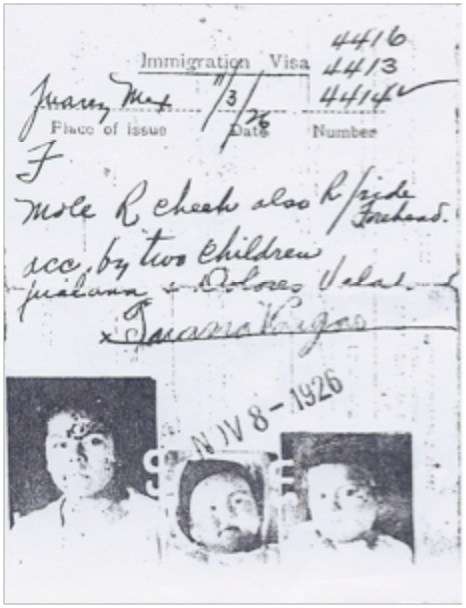 4416
Immigration Visa 4413
Juarez, Mex 11/3/26 4414
Place of issue Date Number
F
Mole R cheek also R/side
Forehead.
acc. by two children
& Dolores
x Juana Vargas
NOV 8 - 1926